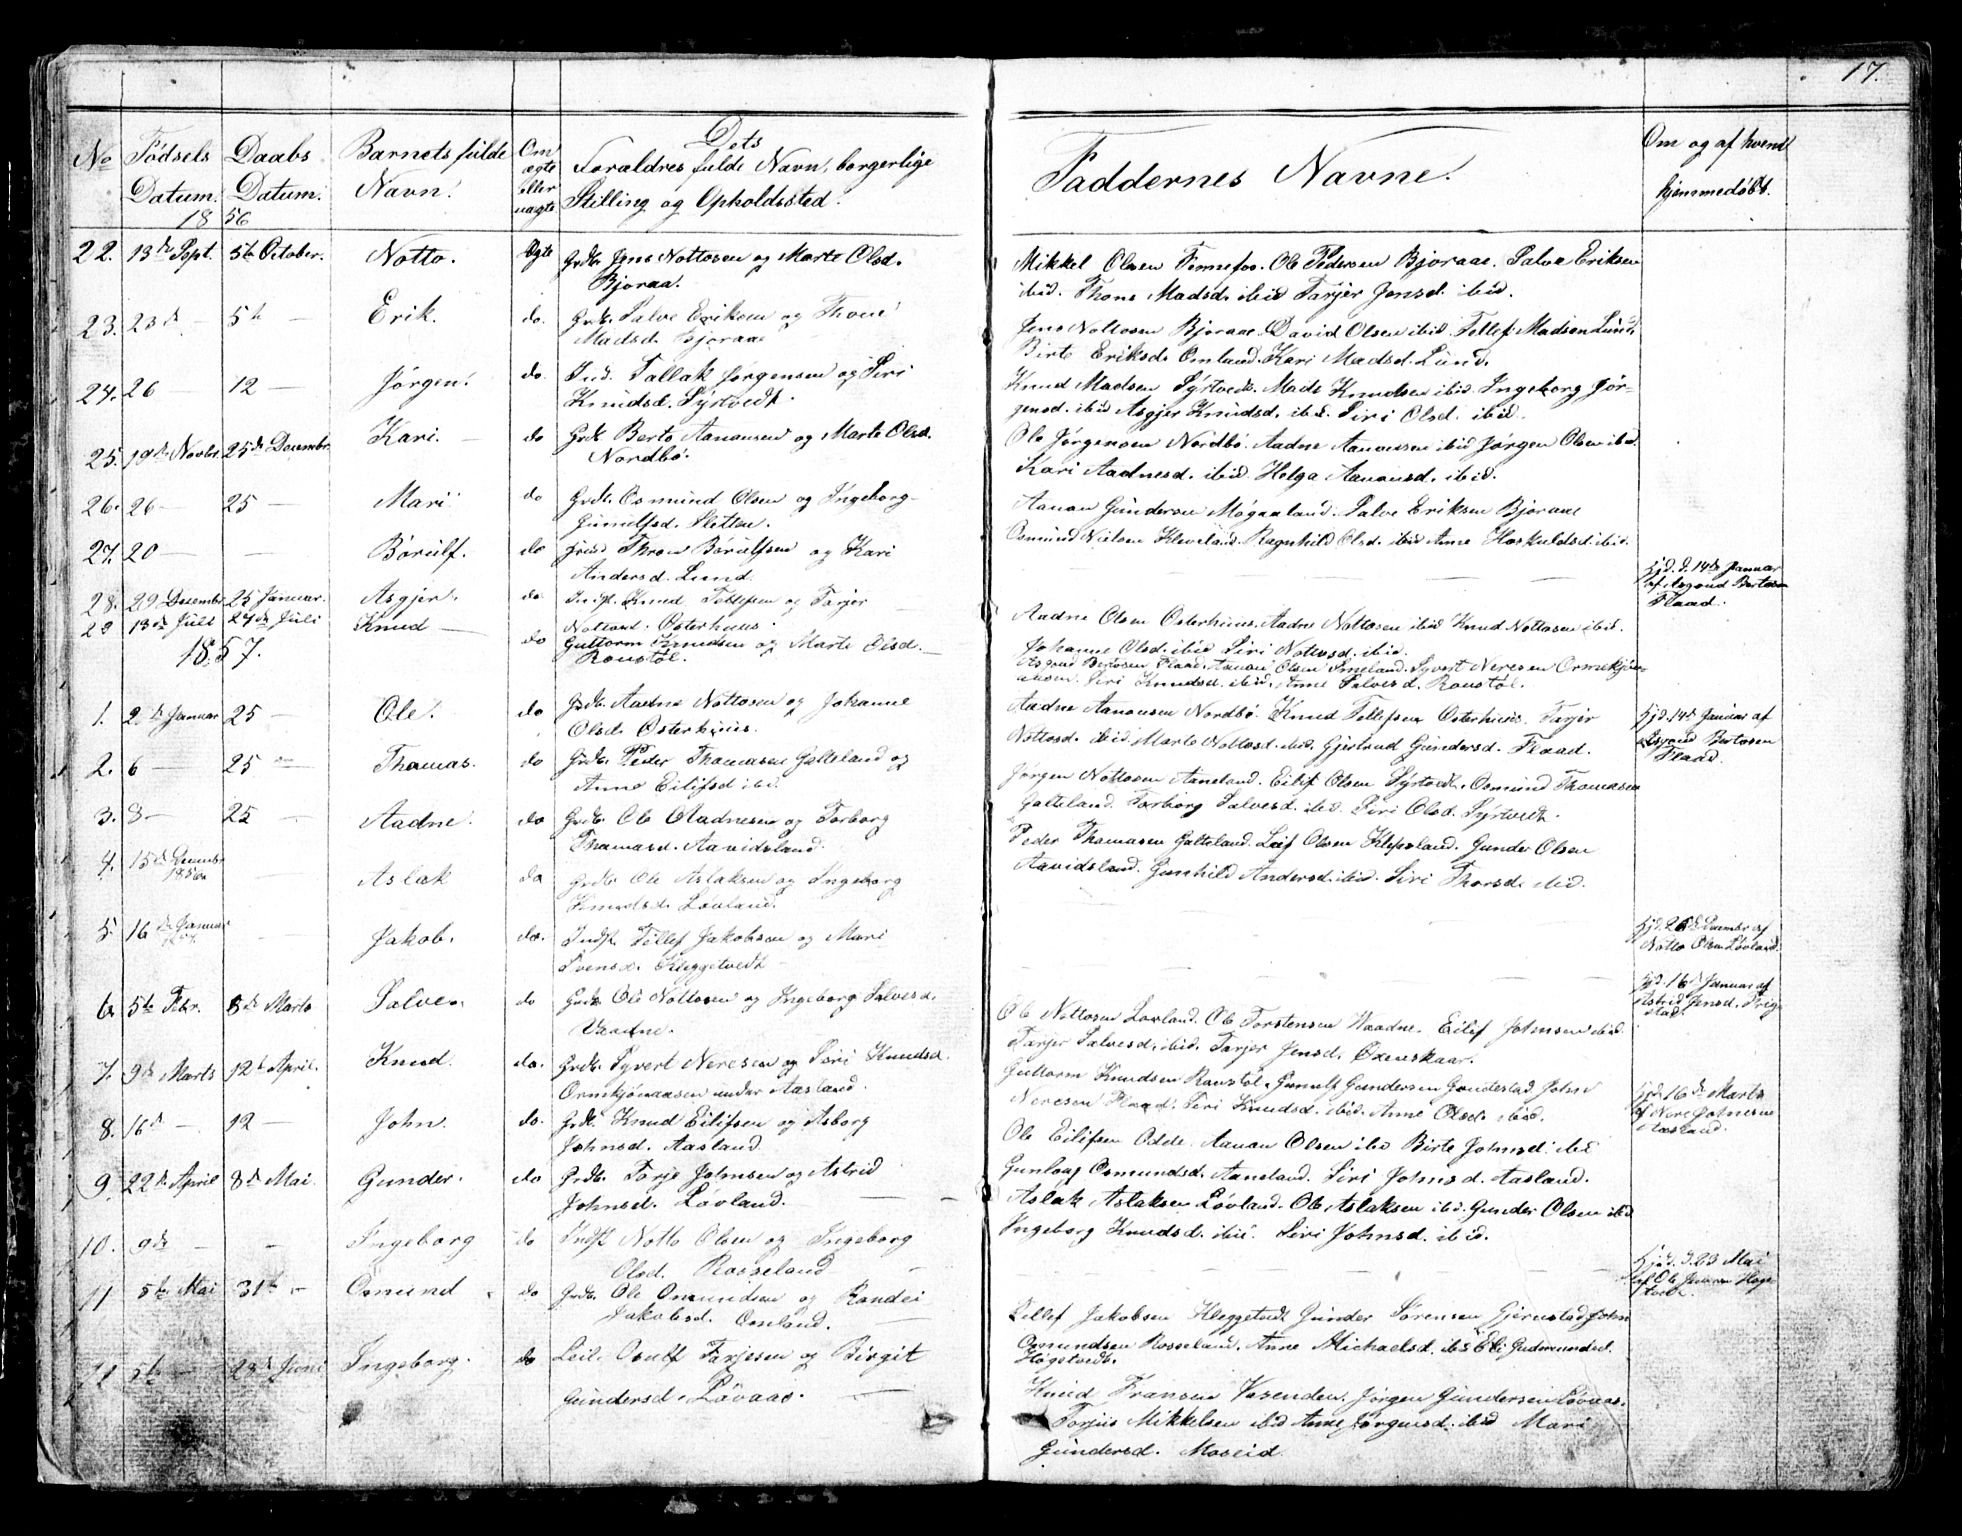 17.
No Fødsels Datum. Daabs Datum. Barnets fulde Navn. Om ægte eller uægte Dets Forældres fulde Navn, borgerlige Stilling og Opholdssted.
Faddernes Navne.
Om og af hvem hjemmedøbt.
1856
22. 13de Sept. 5te October. Notto. Ægte Grdb. Jens Nottosen og Marte Olsd.
Bjoraa.
23. 23de — 5te — Erik. do. Grdb. Salve Eriksen og Thone
Madsd. Bjoraae
24. 26 12 — Jørgen. do. Ind. Tallak Jørgensen og Siri
Knudsd. Syrtvedt.
25. 19de Novbr. 25de Decembr. Kari. do Grdb. Berte Aanonsen og Marte Olsd.
Nordbö.
26. 26 — 25 — Mari do Grdb. Osmund Olsen og Ingeborg
Gunulfsd. Sletten.
27. 20 — — Börulf. do Thron Börulfsen og Kari
Andersd. Lund.
28. 29 Decembr 25 Januar. Asgjer. do Knud Tellefsen og Tarjer
Nottosd. Osterhuus.
29 13de Juli 24de Juli Knud — do Guttorm Knudsen og Marte Olsd.
Roustøl.
1857.
1. 2de Januar 25 — Ole. do Grdb. Aadne Nottosen og Johanne
Olsd. Osterhuus.
2. 6 — 25 — Thomas. do Grdb. Peder Thomasen Galteland og
Anne Eilifsd ibid.
3. 8 — 25 — Aadne. do Grdb. Ole Aadnesen og Torborg
Thomasd. Aavidsland.
4. 15de Decembr 1856 Aslak do Grdb. Ole Aslaksen og Ingeborg
Knudsd. Lovland.
5. 16de Januar Jakob. do. Indst. Tellef Jakobsen og Mari
Svensd. Kleggetvedt —
6. 5te Febr. 8de Marts Salve. do Grdb. Ole Nottosen og Ingeborg Salvesd.
Vaadne.
7. 9de Marts 12te April. Knud. do. Grdb. Syvert Neresen og Siri Knudsd.
Ormkjönaasen under Aasland.
8. 16de — 12 — John. do. Grdb. Knud Eilifsen og Asborg
Johnsd. Aasland.
9. 22de April 8de Mai. Gunder. do Grdb. Torje Johnsen og Astrid
Johnsd. Lövland. —
10. 9de — — Ingeborg do Indst Notto Olsen og Ingeborg
Olsd. Rosseland —
11 5te Mai 31te — Osmund do Grdb. Ole Osmundsen og Randei
Jakobsd. Omland.
5te — 28de Juni Ingeborg. do Leil. Osulf Tarjesen og Birgit
Gundersd. Lövaas. —
Mikkel Olsen Fennefos. Ole Pedersen Bjoraae. Salve Eriksen
ibid. Thone Madsd. ibid Tarjer Jensd. ibid.
Jens Nottosen Bjoraae. David Olsen ibid. Tellef Madsen Lund.
Birte Eriksd. Omland. Kari Madsd. Lund.
Knud Madsen Syrtvedt. Mads Knudsen ibid. Ingeborg Jör-
gensd. ibid Asgjer Knudsd. ibid. Siri Olsd. ibid.
Ole Jörgensen Nordbö. Aadne Aanonsen ibid Jörgen Olsen ibid.
Kari Aadnesd. ibid. Helga Aanonsd. ibid.
Aanon Gundersen Mögaaland. Salve Eriksen Bjoraae
Osmund Nielsen Kleveland. Ragnhild Olsd. ibid Anne Hoskuldsd. ibid.
hjd. d. 14de Januar
af Asgoud Bertosen
Flaad.
Aadne Olsen Osterhuus. Aadne Nottosen ibid Knud Nottosen ibid.
Johanne Olsd. ibid Siri Nottosd. ibid.
Asgoud Bertosen Flaad. Aanon Olsen Smeland. Syvert Neresen Ormekjön-
aasen. Siri Knudsd. ibid. Anne Salvesd. Roustöl.
Aadne Aanonsen Nordbö. Knud Tellefsen Osterhuus. Tarjer
Nottosd. ibid Marte Nottosd. ibid. Gjertrud Gundersd. Flaad.
hjd. 14de Januar af
Asgoud Bertosen
Flaad.
Jörgen Nottosen Aaneland. Eilif Olsen Syrtvedt. Osmund Thomasen
Galteland. Torborg Salvesd. ibid. Siri Olsd. Syrtvedt.
Peder Thomasen Galteland. Leif Olsen Klepsland. Gunder Olsen
Aavidsland. Gunhild Andersd. ibid. Siri Thorsd. ibid.
hjd. 26de Decembr af
Notto Olsen Lövland.
hjd. 16de Januar af
Astrid Jensd. Frig-
stad.
Ole Nottosen Lovland. Ole Torstensen Vaadne. Eilif Johnsen ibid.
Tarjer Salvesd. ibid. Tarjer Jensd. Oxenskaar.
Guttorm Knudsen Roustöl. Gunulf Gundersen Gondestad. John
Neresen Flaad. Siri Knudsd. ibid. Anne Olsd. ibid.
hjd. 16de Marts
af Nere Johnsen
Aasland.
Ole Eilifsen Odde. Aanon Olsen ibid Birte Johnsd. ibid
Gunlaug Osmundsd. Aaneland. Siri Johnsd. Aasland.
Aslak Aslaksen Lövland. Ole Aslaksen ibid. Gunder Olsen ibid
Ingeborg Knudsd. ibid. Siri Johnsd. ibid.
hjd. d. 23 Mai
af Ole Høge-
tvedt.
Tellef Jakobsen Kleggetvedt Gunder Sörensen Gjerustad John
Osmundsen Rosseland. Anne Michaelsd. ibid Eli Gudmundsd.
Högetvedt.
Knud Fransen Vesenden. Jörgen Gundersen Lövaas.
Torjus Mikkelsen ibid Anne Jörgensd. ibid Mari
Gundersd. Moseid